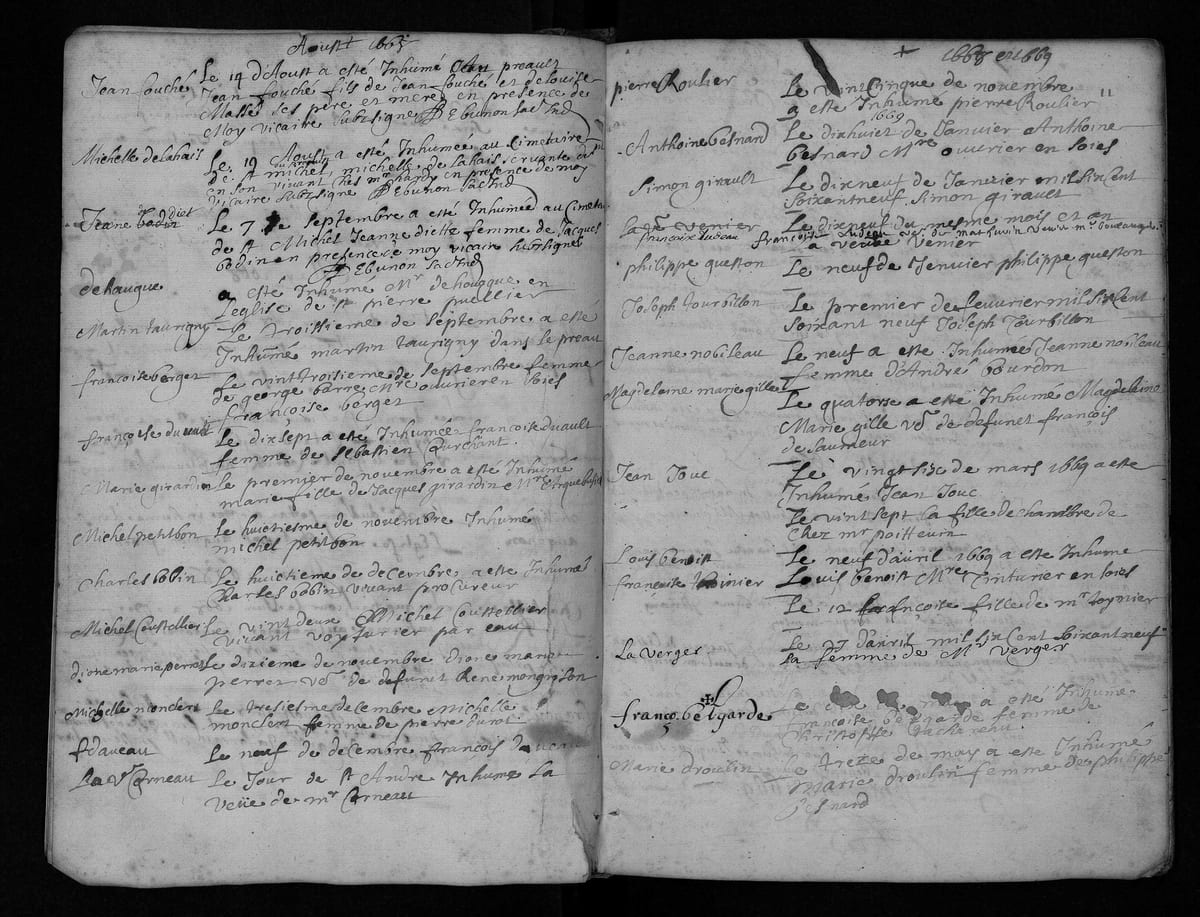 Aoust 1668
Jean fouché
Le 14 d'Aoust a esté Inhumé au preault
Jean fouché fils de Jean fouché et de louise
Massé ses père et mere en presence de
Moy vicaire subsigné
Michelle delahais
Le 19 Aoust a esté Inhumée au Cimetaire
de st michel, michelle de lahais servante
en son vivant ches mr hardy en presence de moy
vicaire subsigné
Jeanne diet
bodin
Le 7e septembre a esté Inhumée au Cimetr
de st Michel Jeanne diette femme de Jacques
bodin en presence de moy vicaire subsigné
dehauque
a esté Inhumé Mr dehouque en
Leglise de st pierre puellier
Martin taurigny
Le troissieme de septembre a esté
Inhumé martin taurigny dans le preau
francoise berget
Le vintroisieme de septembre femme
de george barre Mre ouvrier en soies
françoise berget
françoise duvault
Le dixsept a esté Inhumée francoise duault
femme de sebastien
Marie girardin
Le premier de novembre a esté Inhumé
marie fille de Jacques girardin Mre
Michel petitbon
Le huictiesme de novembre Inhumé
michel petitbon
Charles bobin
Le huictieme de decembre a esté Inhumé
Charles bobin vivant procureur
Michel Coustellier
Le vint deux Michel Coustellier
vivant voyturier par eau
dione marie perrot
Le dizieme de novembre dione marie
perrot ve de defunct René mongison
Michelle monclert
Le tresiesme decembre Michelle
monclert femme de pierre durot
f daveau
Le neuf de decembre françois daveau
La ve Corneau
Le Jour de st André Inhumé La
veüe de mr Corneau
1668 et 1669
pierre Roulier
Le vint Cinque de novembre
a este Inhumé pierre Roulier
1669
Anthoine besnard
Le dixhuict de Janvier Anthoine
besnard Mre ouvrier en soies
Simon girault
Le dixneuf de Janvier mil six Cent
soixantneuf, Simon girault
la ve Venier
françoise
Le dixneuf du mesme mois et an
françoise
la veuve Venier
philippe queston
Le neuf de Jenvier philippe queston
Joseph tourbillon
Le premier de feuvrier mil six Cent
soixant neuf Joseph Tourbillon
Jeanne nobileau
Le neuf a este Inhumée Jeanne nobileau
femme d'André bourdon
Magdelaine marie gille
Le quatorse a esté Inhumé Magdelaine
Marie gille ve de defunct françois
de saumeur
Jean Jouc
Le vingt six de mars 1669 a este
Inhumé Jean Jouc
Le vint sept la fille de chambre de
Chez mr poitteuin
Louis benoist
Le neuf d'avril 1669 a este Inhume
Louis benoist Mre Cinturier en soies
françoise
Le 12 françoise fille de mr
La verger
Le 27 d'avril mil six Cent soixant neuf
la femme de Mr Verger
franç. bellgarde
Le a esté Inhumé
francoise bellgarde femme de
Marie droulin
Le treze de may a este Inhumé
Marie droulin femme de philippe
besnard